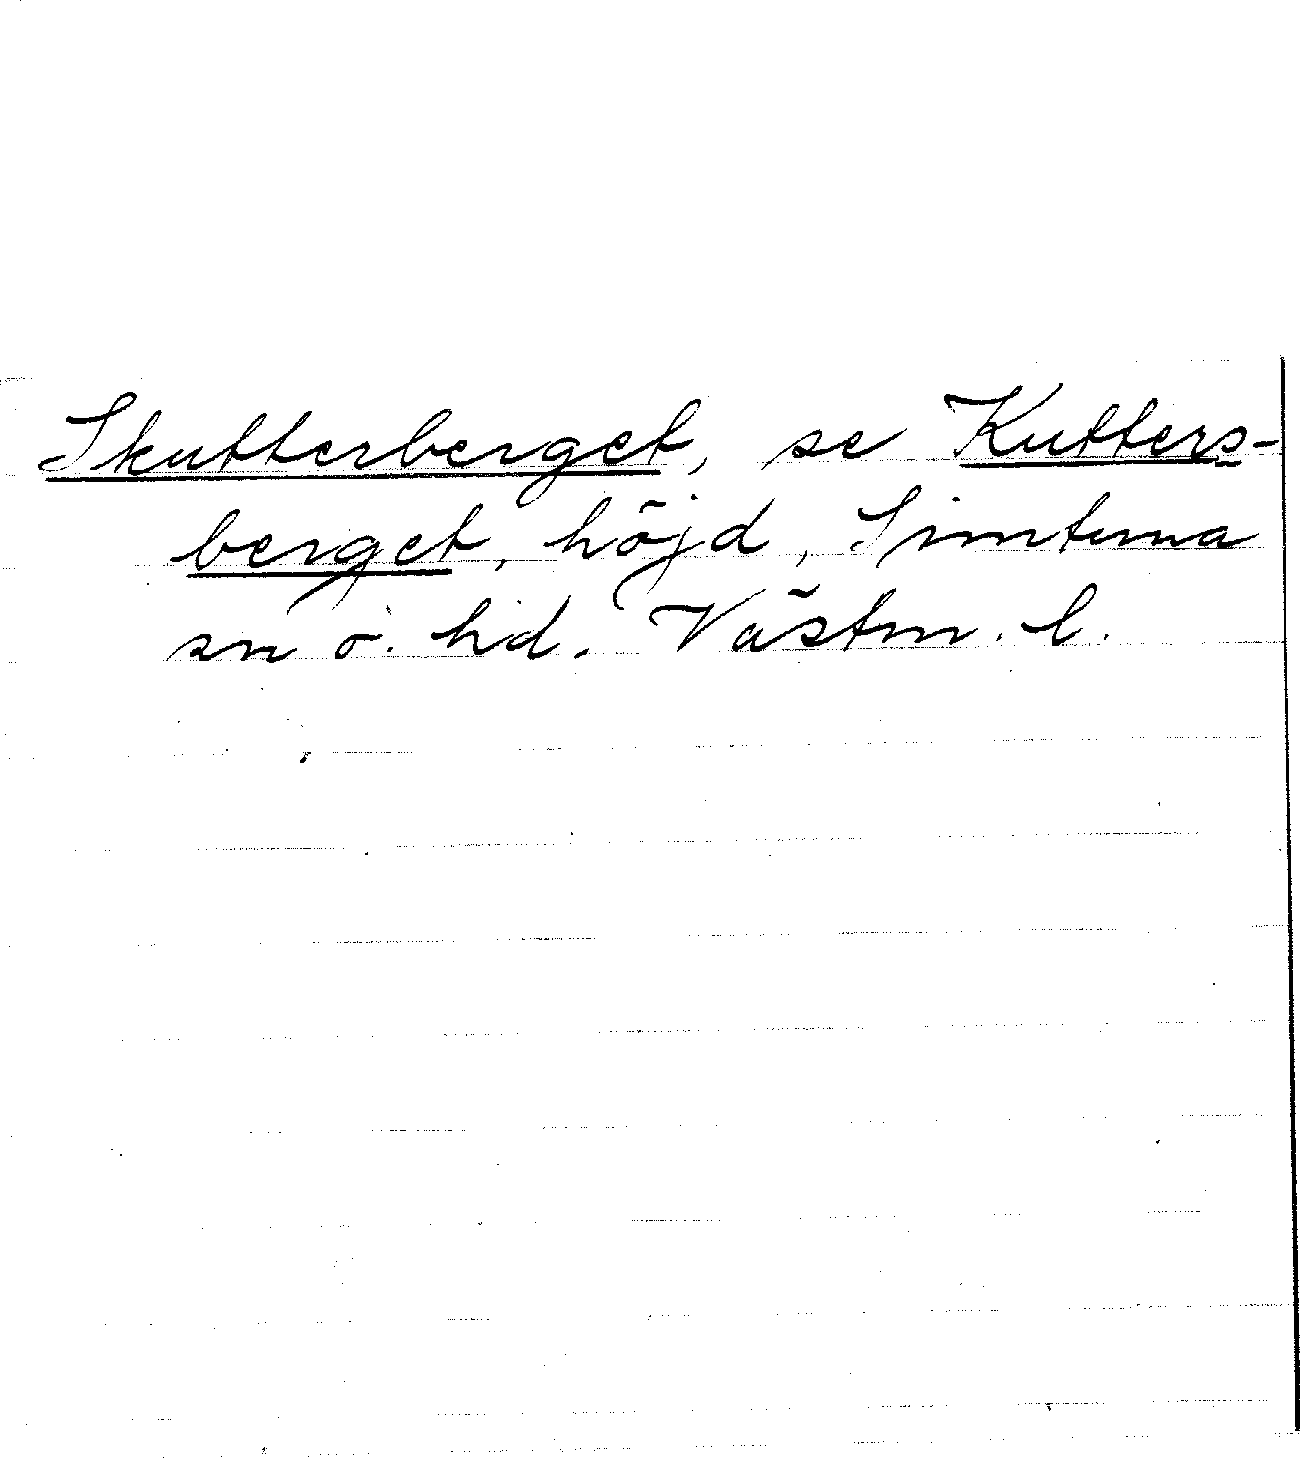 Skutterberget, se Kutters-
berget, höjd, Simtuna
sn o. hd. Västm. l.